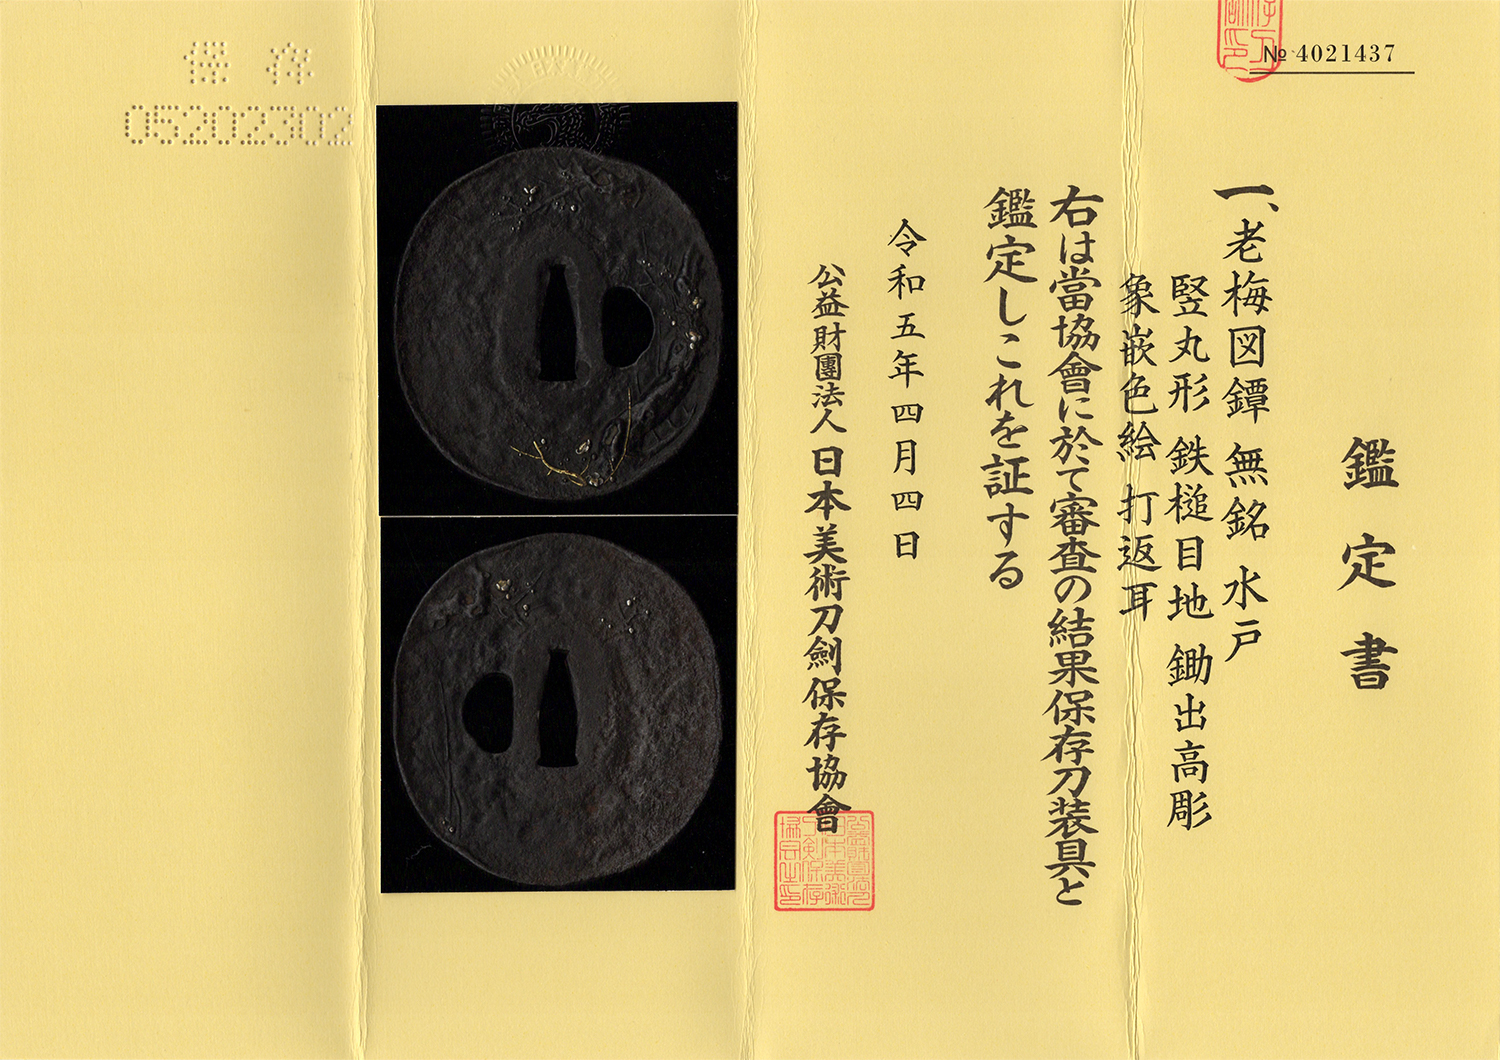 № 4021437
鑑定書
一、老梅図鐔 無銘 水戸
竪丸形 鉄槌目地 鋤出高彫
象嵌色絵 打返耳
右は當協會に於て審査の結果保存刀装具と
鑑定しこれを証する
令和五年四月四日
公益財團法人 日本美術刀劍保存協會
保存
05202302